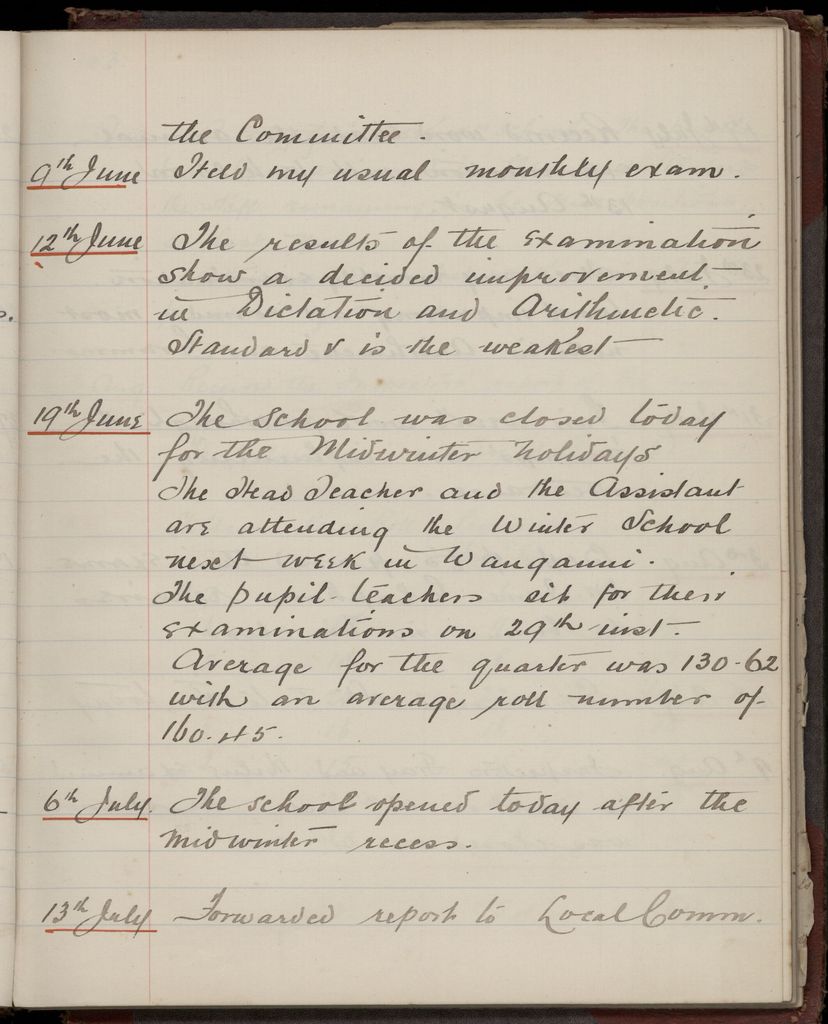 the Committee.
9th June Held my usual monthly exam.
12th June The results of the Examination
show a decided improvement
in Dictation and Arithmetic.
Standard V is the weakest
19th June The school was closed today
for the Midwinter holidays
The Head Teacher and the Assistant
are attending the Winter School
next week in Wanganui.
The pupil-teachers sit for their
Examinations on 29th inst.
Average for the quarter was 130.62
with an average roll number of
160.45.
6th July. The school opened today after the
Midwinter recess.
13th July Forwarded report to Local Comm.